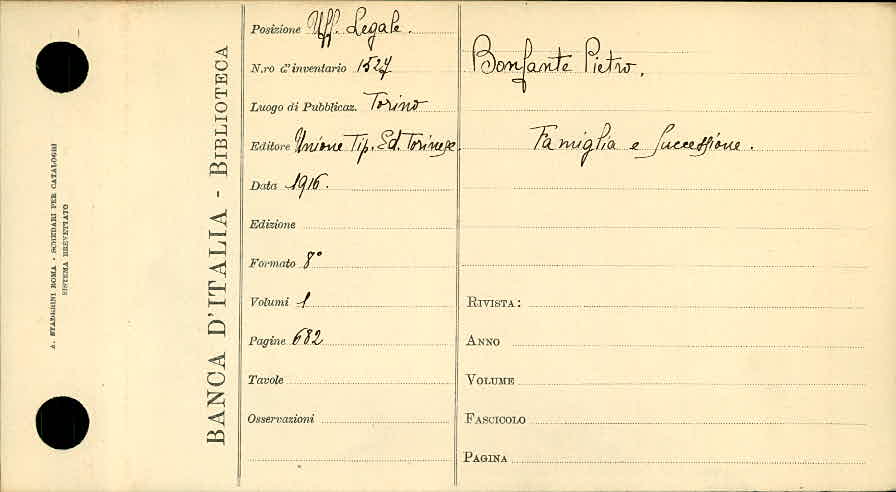 A. STADERINI ROMA - SCHEDARI PER CATALOGHI
SISTEMA BREVETTATO
BANCA D'ITALIA - BIBLIOTECA
Posizione Uff. Legale.
N.ro d'inventario 1527
Luogo di Pubblicaz. Torino
Editore Unione Tip. Ed. Torinese.
Data 1916.
Edizione
Formato 8°
Volumi 1
Pagine 682
Tavole
Osservazioni
Bonfante Pietro.
Famiglia e Successione.
RIVISTA:
ANNO
VOLUME
FASCICOLO
PAGINA